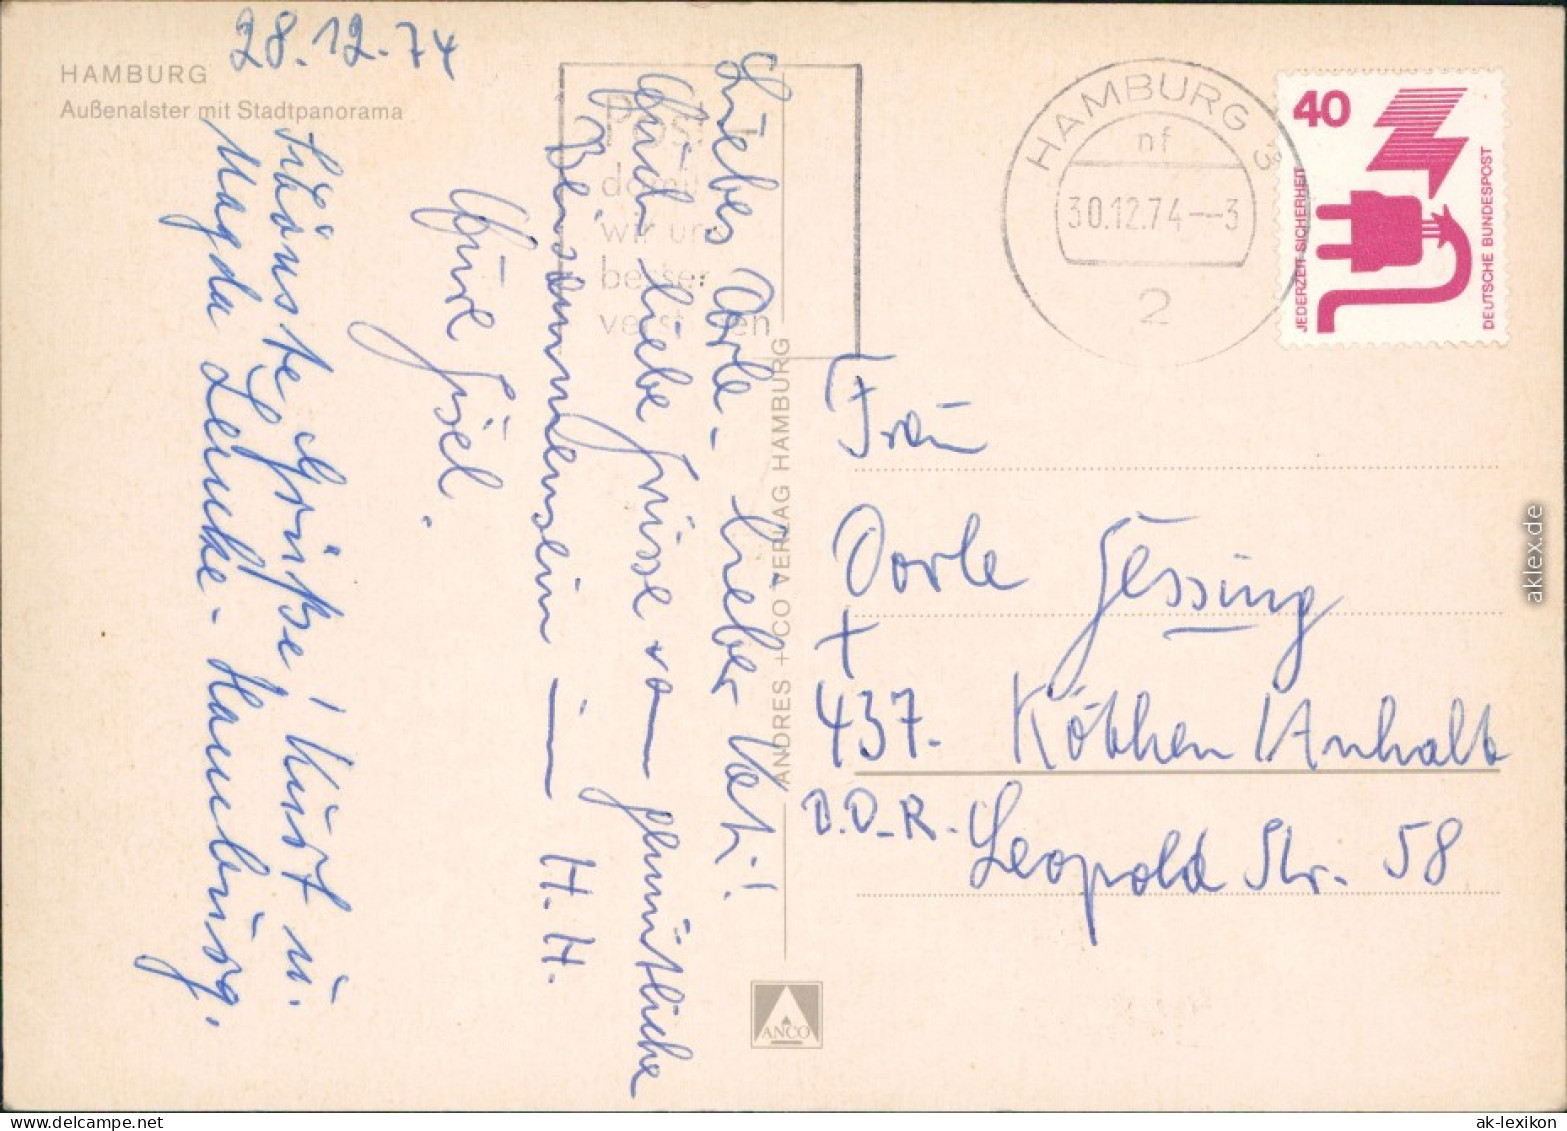 28.12.74
HAMBURG
Außenalster mit Stadtpanorama
Liebes Dorle - lieber Vati!
Euch liebe Grüsse v. gemütliche
Beisammensein in H.H.
Eure Gisel.
Schönste Grüße! Kurt u.
Magda Lemke - Hamburg.
Post
damit
wir uns
besser
verstehen
HAMBURG 3
nf
30.12.74--3
2
40
JEDERZEIT SICHERHEIT
DEUTSCHE BUNDESPOST
ANDRES + CO VERLAG HAMBURG
ANCO
Frau
Dorle Gessing
+
437. Köthen / Anhalt
D.D.R. Leopold Str. 58
aklex.de
ak-lexikon